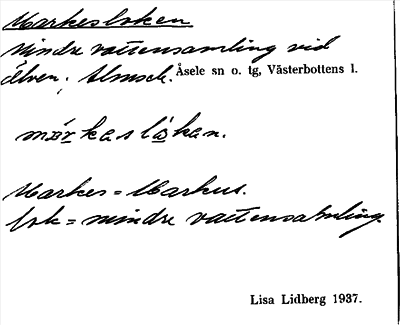 Markesloken
mindre vattensamling vid
älven; Almsele. Åsele sn o. tg, Västerbottens l.
markeslökan.
Markes = Markus.
lok = mindre vattensamling.
Lisa Lidberg 1937.